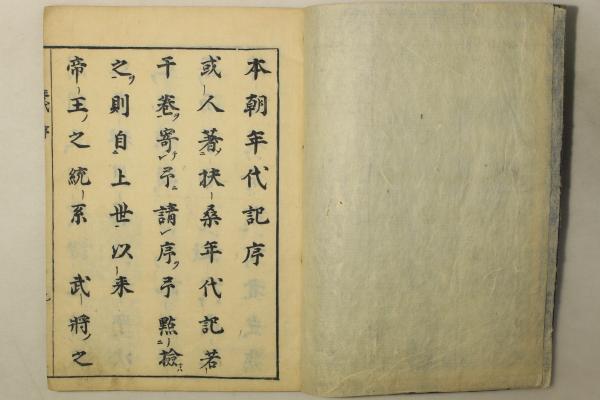 本朝年代記序
或人著扶桑年代記若
干卷寄予請序予點檢
之則自上世以来
帝王之統系武將之